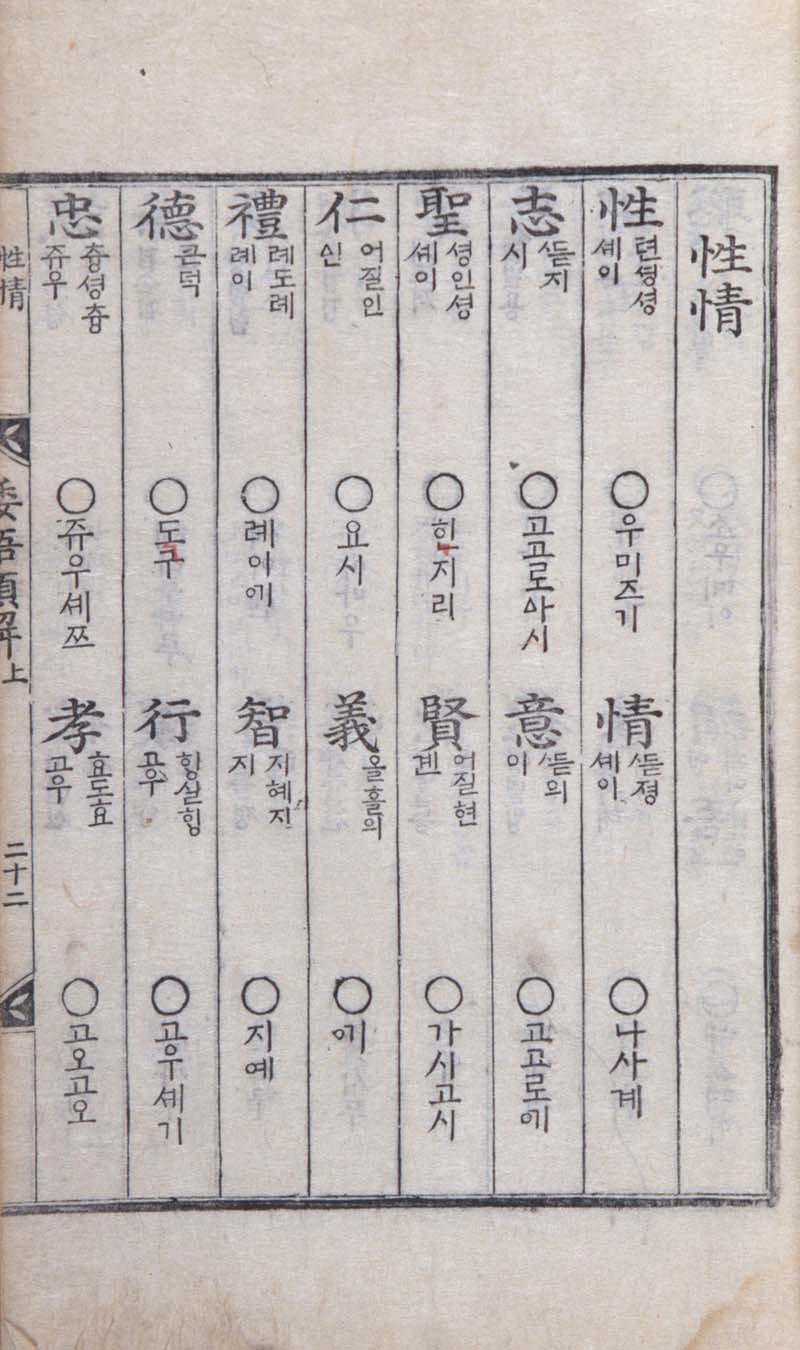 性情
性 텬셩셩 셰이 ○우미즈기 情 ᄯᅳᆮ졍 셰이 ○나사계
志 ᄯᅳᆮ지 시 ○고고로아시 意 ᄯᅳᆮ의 이 ○고고로에
聖 셩인셩 셰이 ○힌지리 賢 어질현 겐 ○가시고시
仁 어질인 신 ○요시 義 올흘의 ○에
禮 례도례 례이 ○례이에 智 지혜지 지 ○지예
德 큰덕 ○도구 行 ᄒᆡᆼ실ᄒᆡᆼ 고우 ○고우셰기
忠 츙셩츙 쥬우 ○쥬우셰쯔 孝 효도효 고우 ○고오고오
性情 倭語類解上 二十二